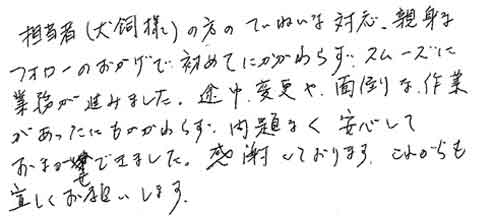 担当者(犬飼様)の方のていねいな対応、親身な
フォローのおかげで初めてにかかわらず、スムーズに
業務が進みました。途中、変更や、面倒な、作業
があったにもかかわらず、問題なく安心して
おまかせできました。感謝しております。これからも
宜しくお願いします。